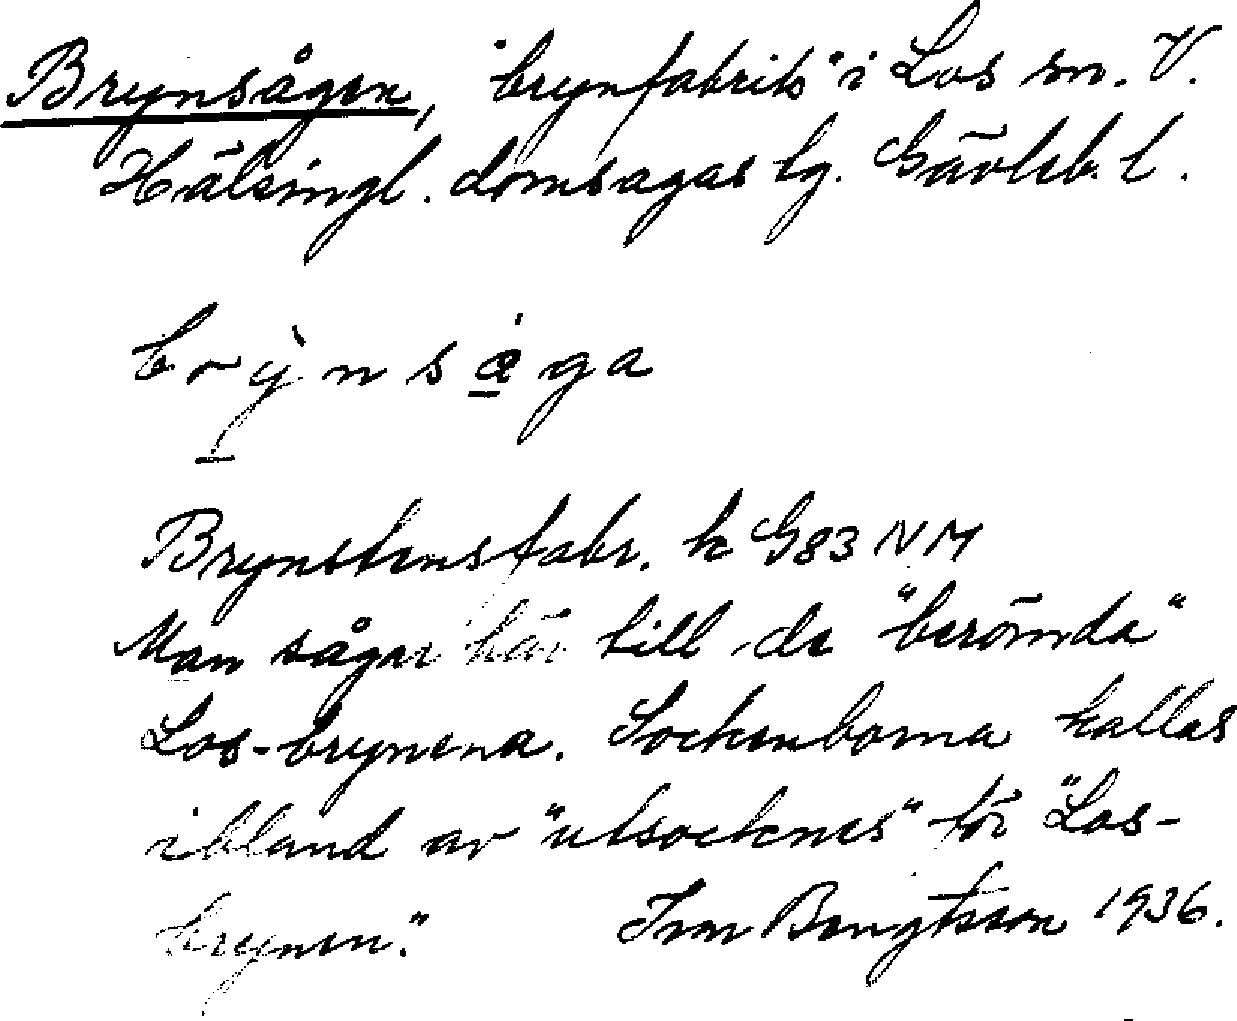 Brynsågen, "brynfabrik" i Los sn. V.
Hälsingl. domsagas tg. Gävleb. l.
brỳnsåga
Brynstensfabr. k G83 NM
Man sågar här till de "berömda"
Los-brynena. Sockenborna kallas
ibland av "utsocknes" för "Los-
brynen."
Ivar Bengtsson 1936.